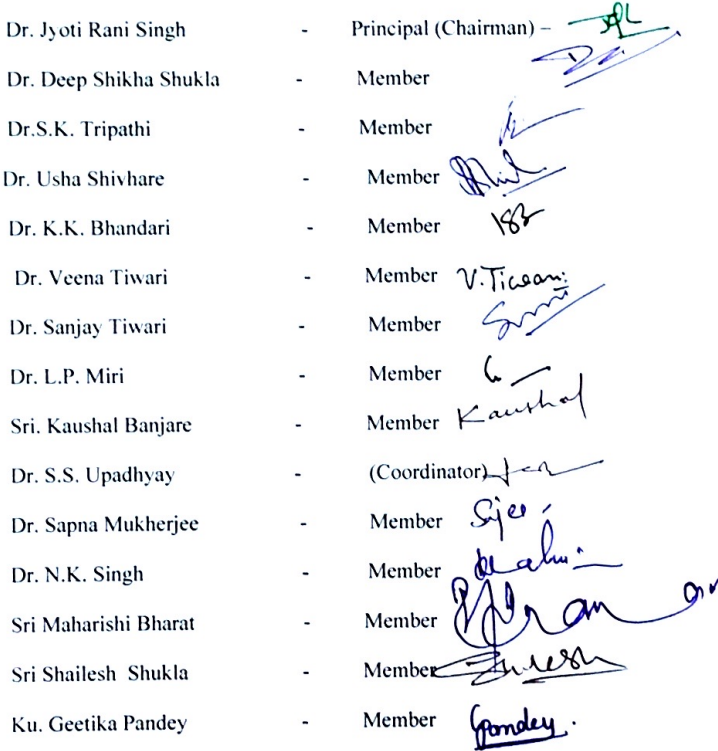 Dr. Jyoti Rani Singh - Principal (Chairman) –
Dr. Deep Shikha Shukla - Member
Dr.S.K. Tripathi - Member
Dr. Usha Shivhare - Member
Dr. K.K. Bhandari - Member
Dr. Veena Tiwari - Member V.Tiwari
Dr. Sanjay Tiwari - Member
Dr. L.P. Miri - Member
Sri. Kaushal Banjare - Member Kaushal
Dr. S.S. Upadhyay - (Coordinator)
Dr. Sapna Mukherjee - Member
Dr. N.K. Singh - Member
Sri Maharishi Bharat - Member
Sri Shailesh Shukla - Member
Ku. Geetika Pandey - Member GPandey.